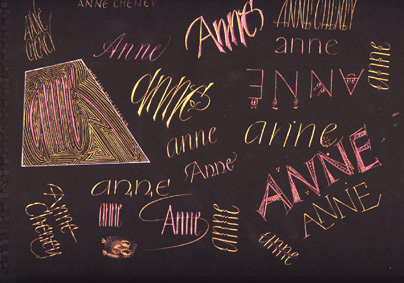 ANNE CHENEY
ANNE CHENEY
anne
cheney
Anne
Anne
anne
anne
ANNE
anne
anne
anne
Anne
ANNE
anne
Anne
Cheney
anne
Anne
anne
ANNE
anne